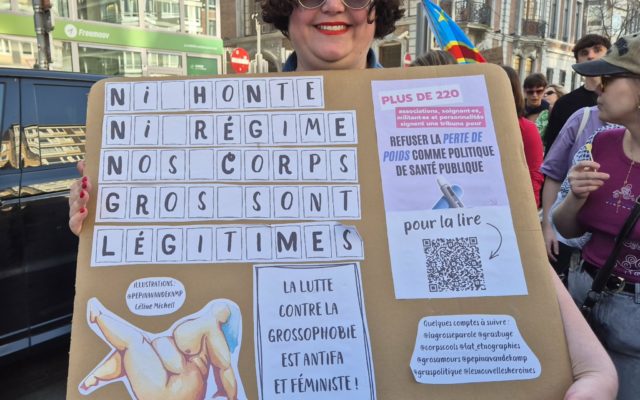 Freemouv
NI HONTE
NI RÉGIME
NOS CORPS
GROS SONT
LÉGITIMES
ILLUSTRATIONS :
@PEPINAVANDEKAMP
Céline Michell
LA LUTTE
CONTRE LA
GROSSOPHOBIE
EST ANTIFA
ET FÉMINISTE !
PLUS DE 220
associations, soignant·es,
militant·es et personnalités
signent une tribune pour
REFUSER LA PERTE DE
POIDS COMME POLITIQUE
DE SANTÉ PUBLIQUE
pour la lire
Quelques comptes à suivre :
@lagrosseparole @grastuge
@corpscools @fat_ethographies
@grosamours @pepinavandekamp
@graspolitique @lesnouvellesheroines